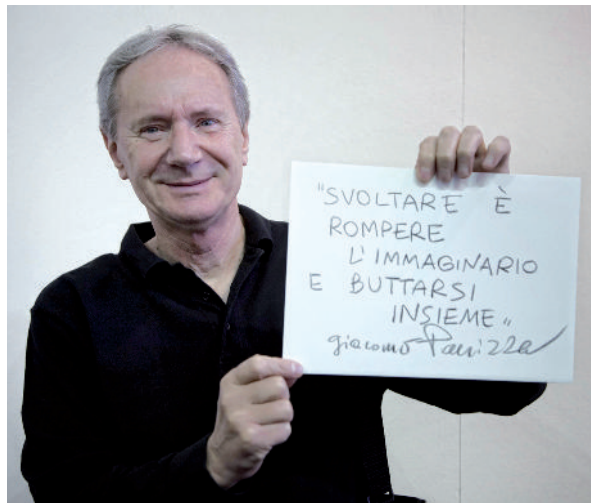 "SVOLTARE È
ROMPERE
L'IMMAGINARIO
E BUTTARSI
INSIEME"
giacomo Panizza